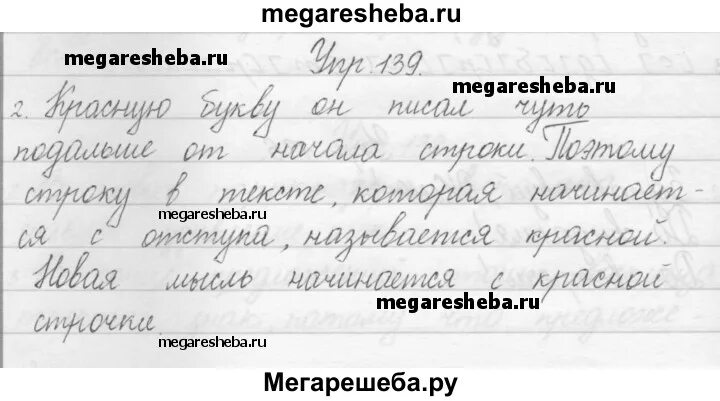 megaresheba.ru
Упр. 139.
megaresheba.ru
megaresheba.ru
2. Красную букву он писал чуть
подальше от начала строки. Поэтому
строку в тексте, которая начинает-
megaresheba.ru
ся с отступа, называется красной.
Новая мысль начинается с красной
megaresheba.ru
строчки.
megaresheba.ru
Мегарешеба.ру